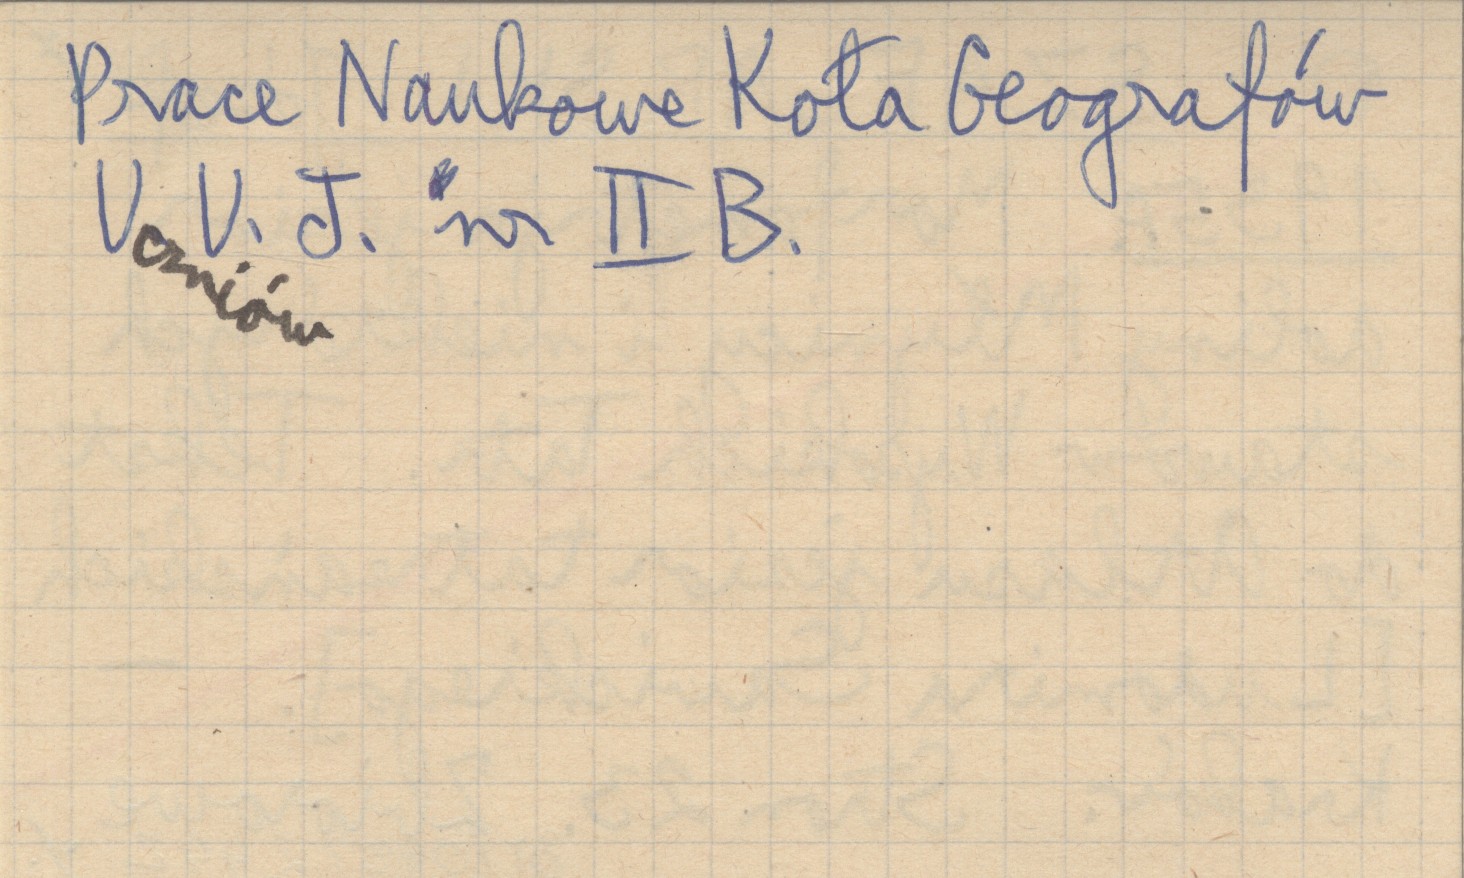 Prace Naukowe Koła Geografów
Uczniów U. J. nr II B.